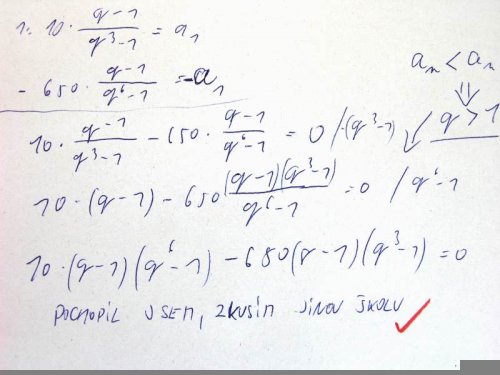 1. 10 · (q-1)/(q³-1) = a₁
- 650 · (q-1)/(q⁶-1) = -a₁
aₙ < aₙ
⇓
q > 1
10 · (q-1)/(q³-1) - 650 · (q-1)/(q⁶-1) = 0 / ·(q³-1)
10 · (q-1) - 650 (q-1)(q³-1)/(q⁶-1) = 0 / q⁶-1
10 · (q-1)(q⁶-1) - 650(q-1)(q³-1) = 0
POCHOPIL JSEM, ZKUSÍM JINOU ŠKOLU